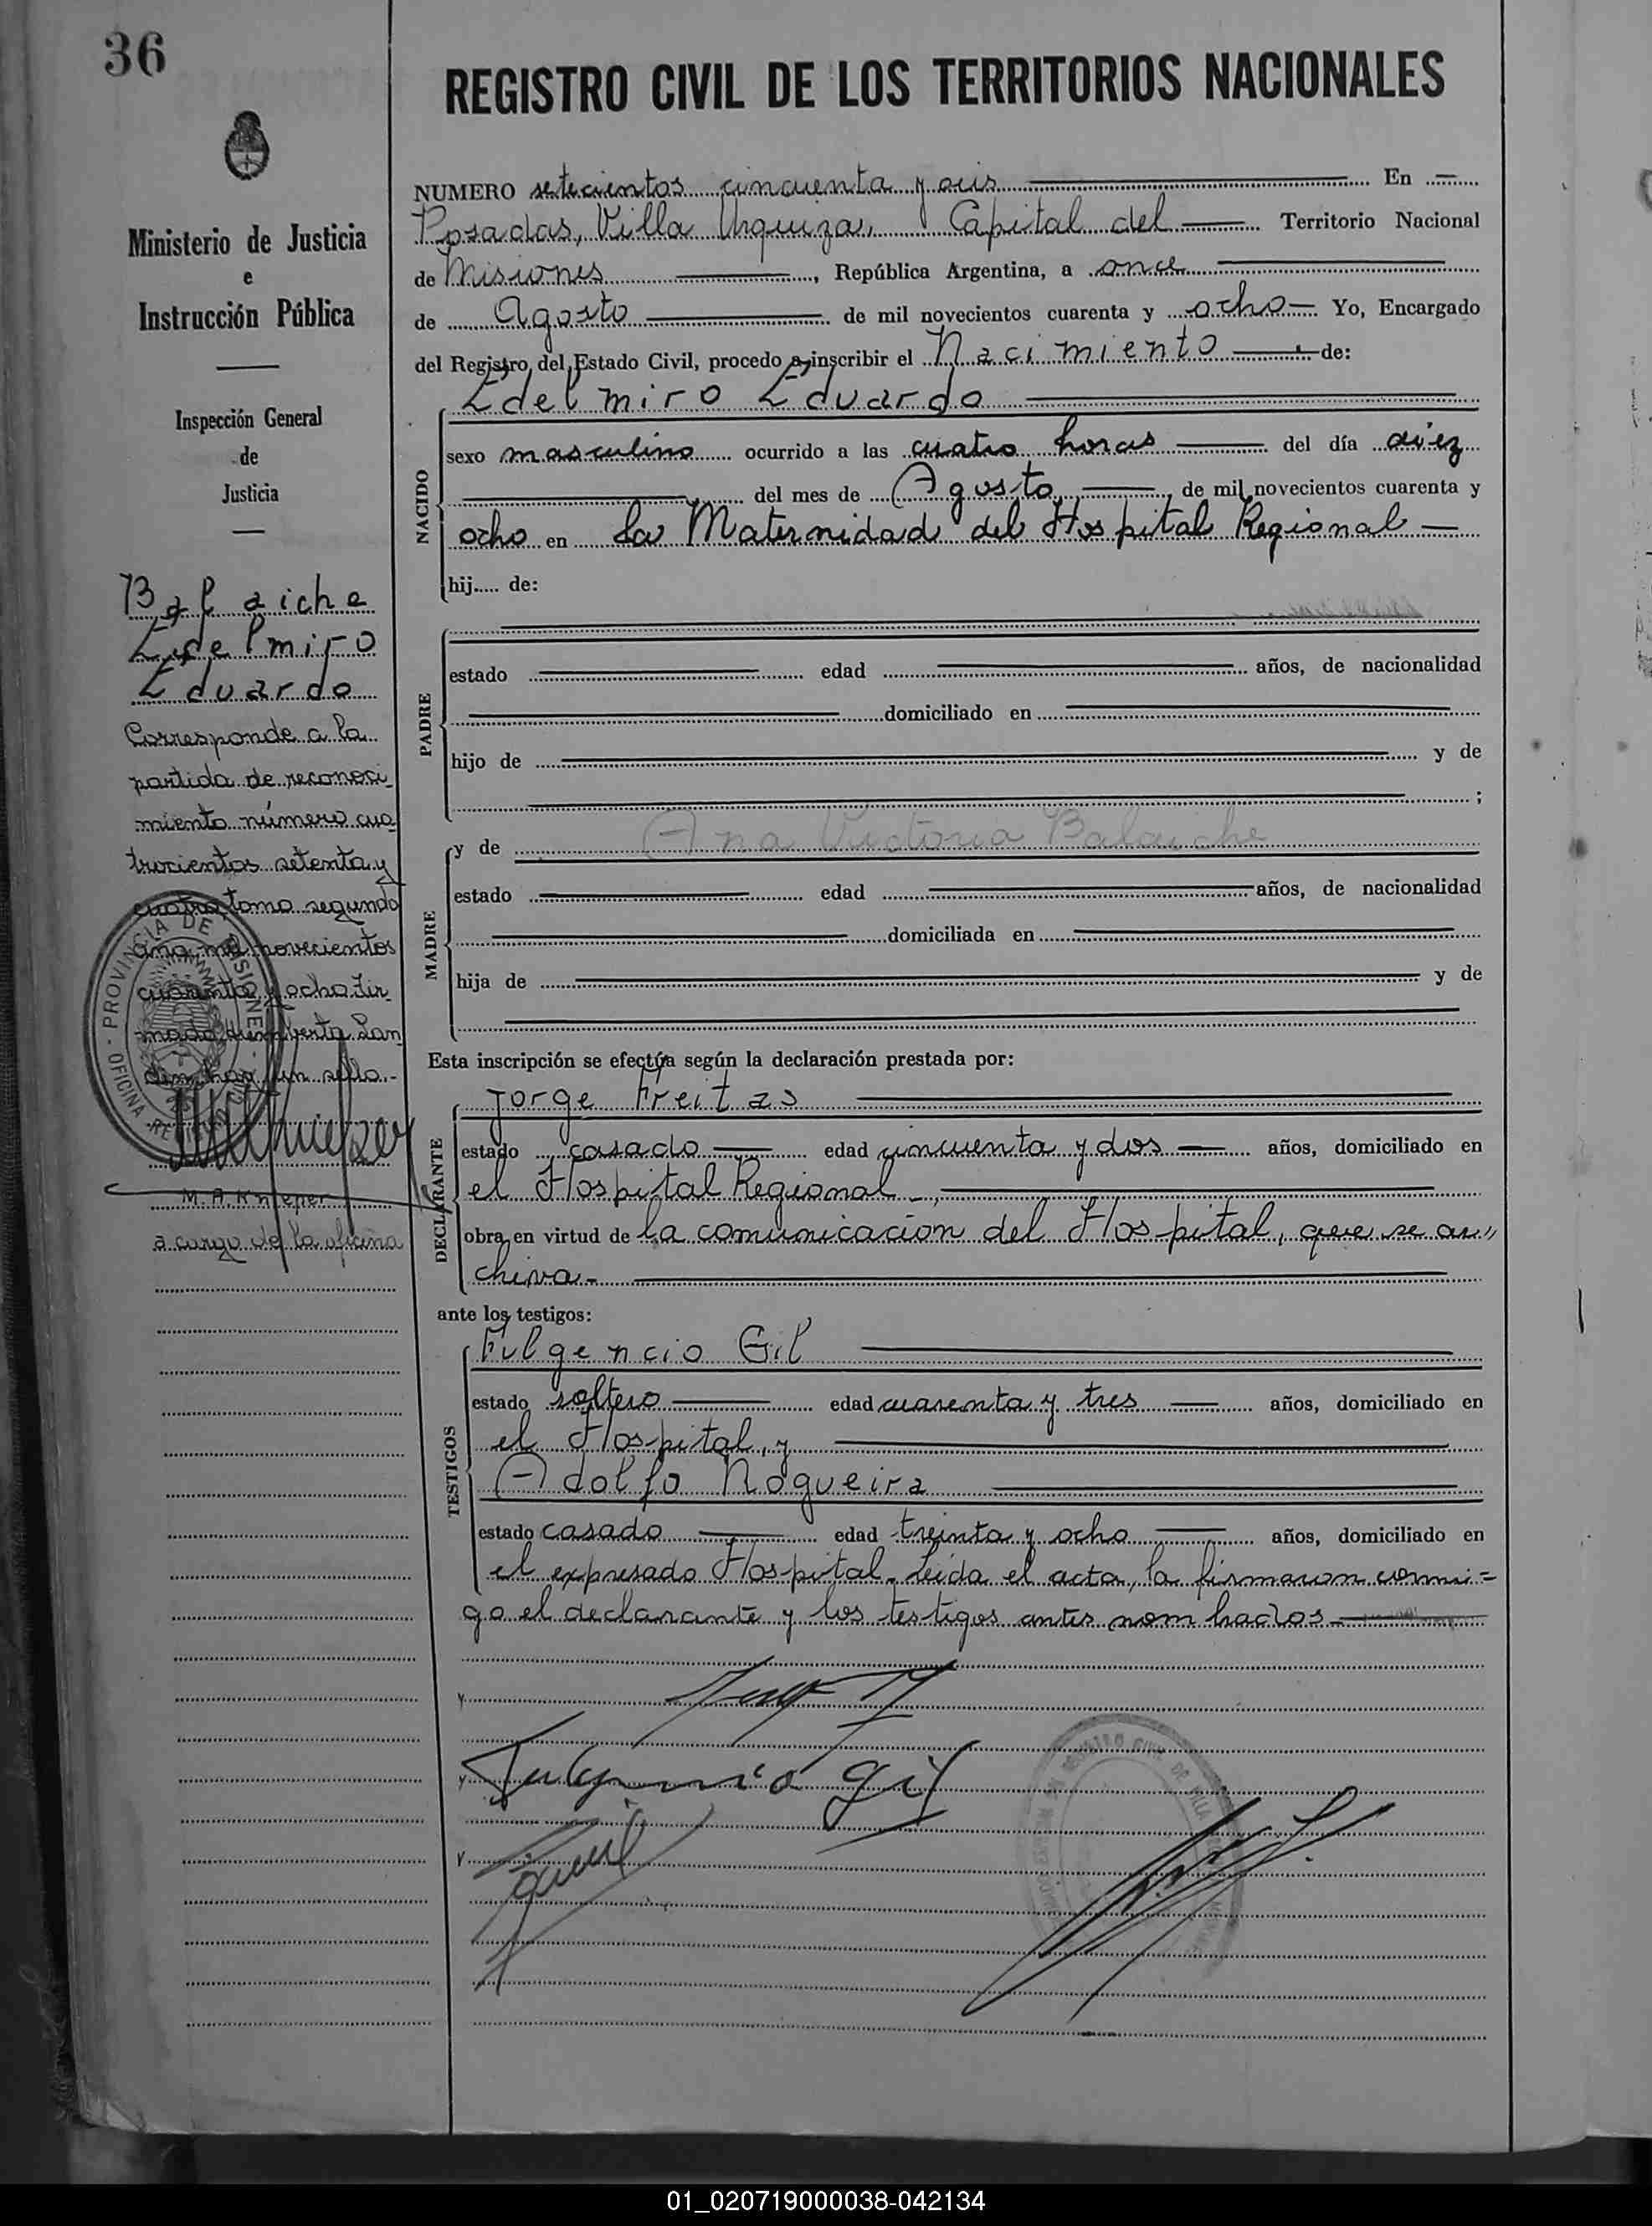 36
REGISTRO CIVIL DE LOS TERRITORIOS NACIONALES
Ministerio de Justicia
e
Instrucción Pública
Inspección General
de
Justicia
Balaiche
Edelmiro
Eduardo
Corresponde a la
partida de reconoci_
miento número cua
trocientos setenta y
cuatro tomo segundo
año mil novecientos
cuarenta y ocho. Fir
mado: Humberto
hay un sello.-
M. A. Knieper
a cargo de la oficina
PROVINCIA DE MISIONES - OFICINA
NUMERO setecientos cincuenta y seis En
Posadas, Villa Urquiza, Capital del Territorio Nacional
de Misiones, República Argentina, a once
de Agosto de mil novecientos cuarenta y ocho Yo, Encargado
del Registro del Estado Civil, procedo a inscribir el Nacimiento de:
Edelmiro Eduardo
NACIDO
sexo masculino ocurrido a las cuatro horas del día diez
del mes de Agosto, de mil novecientos cuarenta y
ocho en la Maternidad del Hospital Regional
hij..... de:
PADRE
estado edad años, de nacionalidad
domiciliado en
hijo de y de
;
MADRE
y de Ana Victoria Balaiche
estado edad años, de nacionalidad
domiciliada en
hija de y de
Esta inscripción se efectúa según la declaración prestada por:
DECLARANTE
Jorge Freitas
estado casado edad cincuenta y dos años, domiciliado en
el Hospital Regional.,
obra en virtud de la comunicacion del Hospital, que se ar"
chiva.-
ante los testigos:
TESTIGOS
Fulgencio Gil
estado soltero edad cuarenta y tres años, domiciliado en
el Hospital, y
Adolfo Nogueira
estado casado edad treinta y ocho años, domiciliado en
el expresado Hospital. Leida el acta, la firmaron conmi=
go el declarante y los testigos antes nombrados.
Fulgencio Gil
01_020719000038-042134